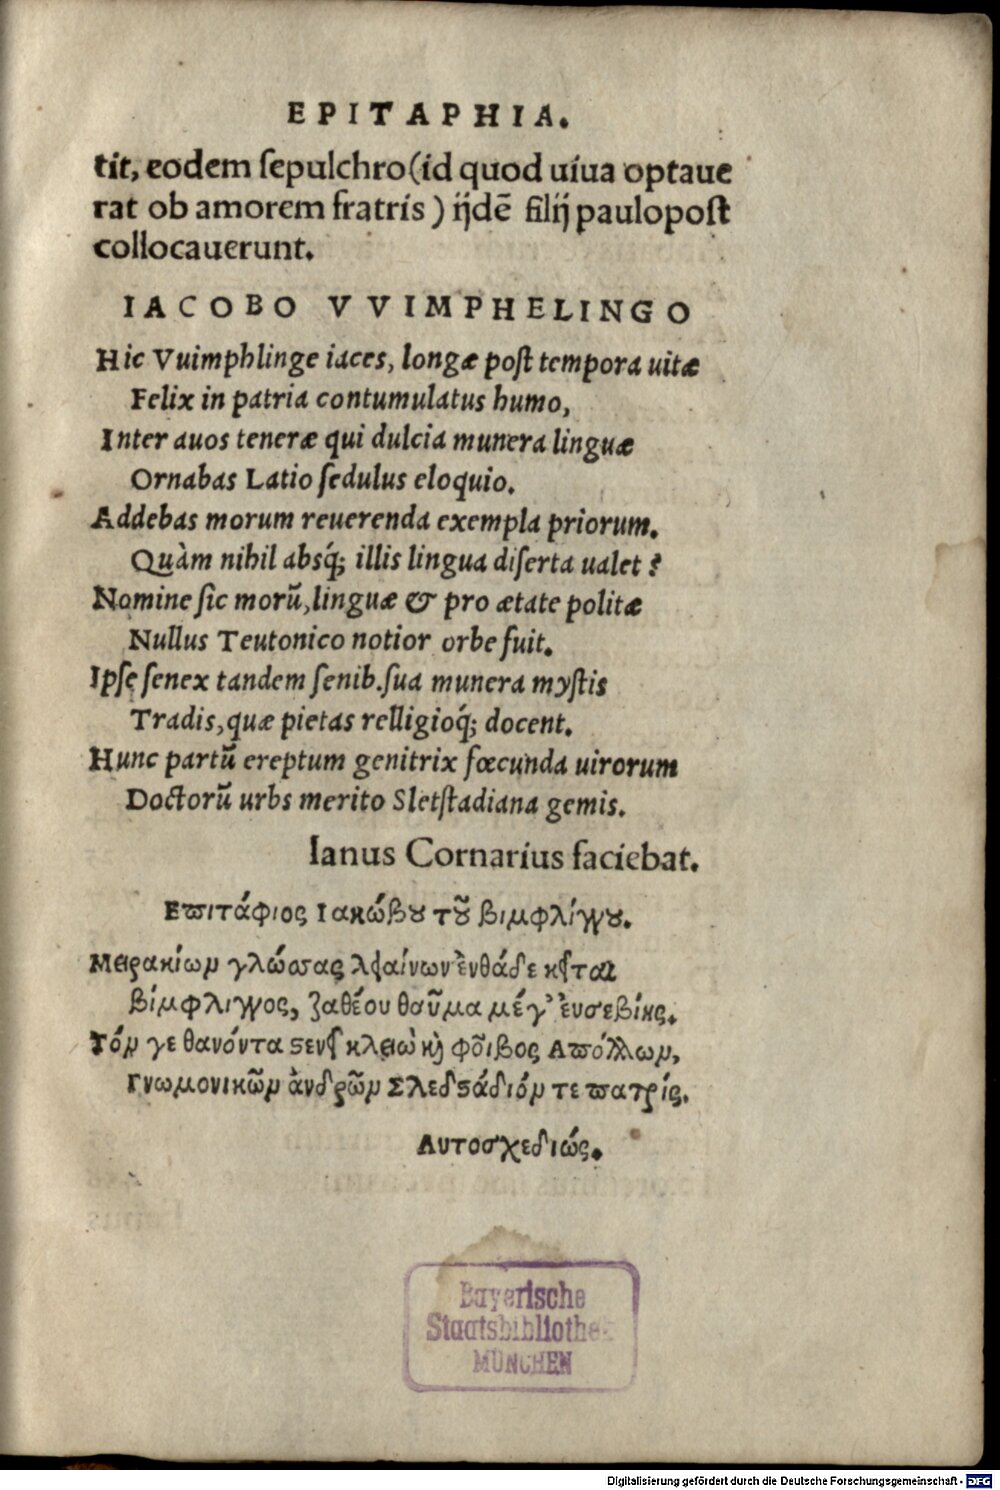 EPITAPHIA.
tit, eodem sepulchro (id quod uiua optaue
rat ob amorem fratris) ijdē filij paulopost
collocauerunt.
IACOBO VVIMPHELINGO
Hic Vuimphlinge iaces, longæ post tempora uitæ
Felix in patria contumulatus humo,
Inter auos teneræ qui dulcia munera linguæ
Ornabas Latio sedulus eloquio.
Addebas morum reuerenda exempla priorum.
Quàm nihil absq́; illis lingua diserta ualet?
Nomine sic morū, linguæ & pro ætate politæ
Nullus Teutonico notior orbe fuit.
Ipse senex tandem senib. sua munera mystis
Tradis, quæ pietas relligioq́; docent.
Hunc partū ereptum genitrix fœcunda uirorum
Doctorū urbs merito Sletstadiana gemis.
Ianus Cornarius faciebat.
Επιτάφιος Ιακώβου τοῦ βιμφλίγγου.
Μειρακίων γλώσσας λειαίνων ἐνθάδε κεῖται
βίμφλιγγος, ζαθέου θαῦμα μέγ' ἐυσεβίης.
Τόν γε θανόντα στένει κλειὼ καὶ φοῖβος Απόλλων,
Γνωμονικῶν ἀνδρῶν Σλεδστάδιόν τε πατρίς.
Αυτοσχεδιώς.
Bayerische
Staatsbibliothek
MÜNCHEN
Digitalisierung gefördert durch die Deutsche Forschungsgemeinschaft - DFG